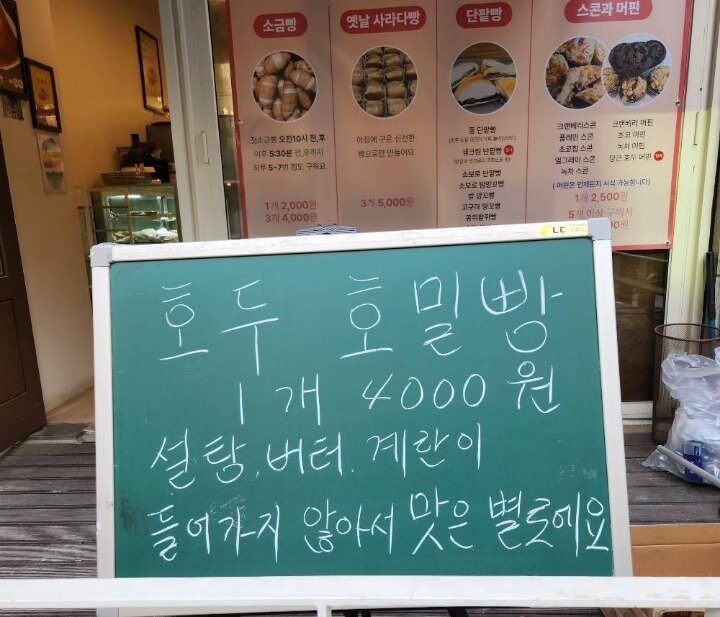 소금빵
옛날 사라다빵
단팥빵
스콘과 머핀
갓소금빵 오전10시 전,후
이후 5:30분 전,후까지
하루 5~7번 정도 구워요
1개 2,000원
3개 4,000원
아침에 구운 신선한
빵으로만 만들어요
3개 5,000원
통 단팥빵
생크림 단팥빵
소보로 단팥빵
소보로 밤앙꼬빵
쌀 앙꼬빵
고구마 앙꼬빵
크랜베리스콘
플레인 스콘
초코칩 스콘
얼그레이 스콘
녹차 스콘
크랜베리 머핀
초코 머핀
녹차 머핀
당근 호두 머핀
1개 2,500원
5개 이상 구매시
호두 호밀빵
1개 4000원
설탕, 버터, 계란이
들어가지 않아서 맛은 별로에요